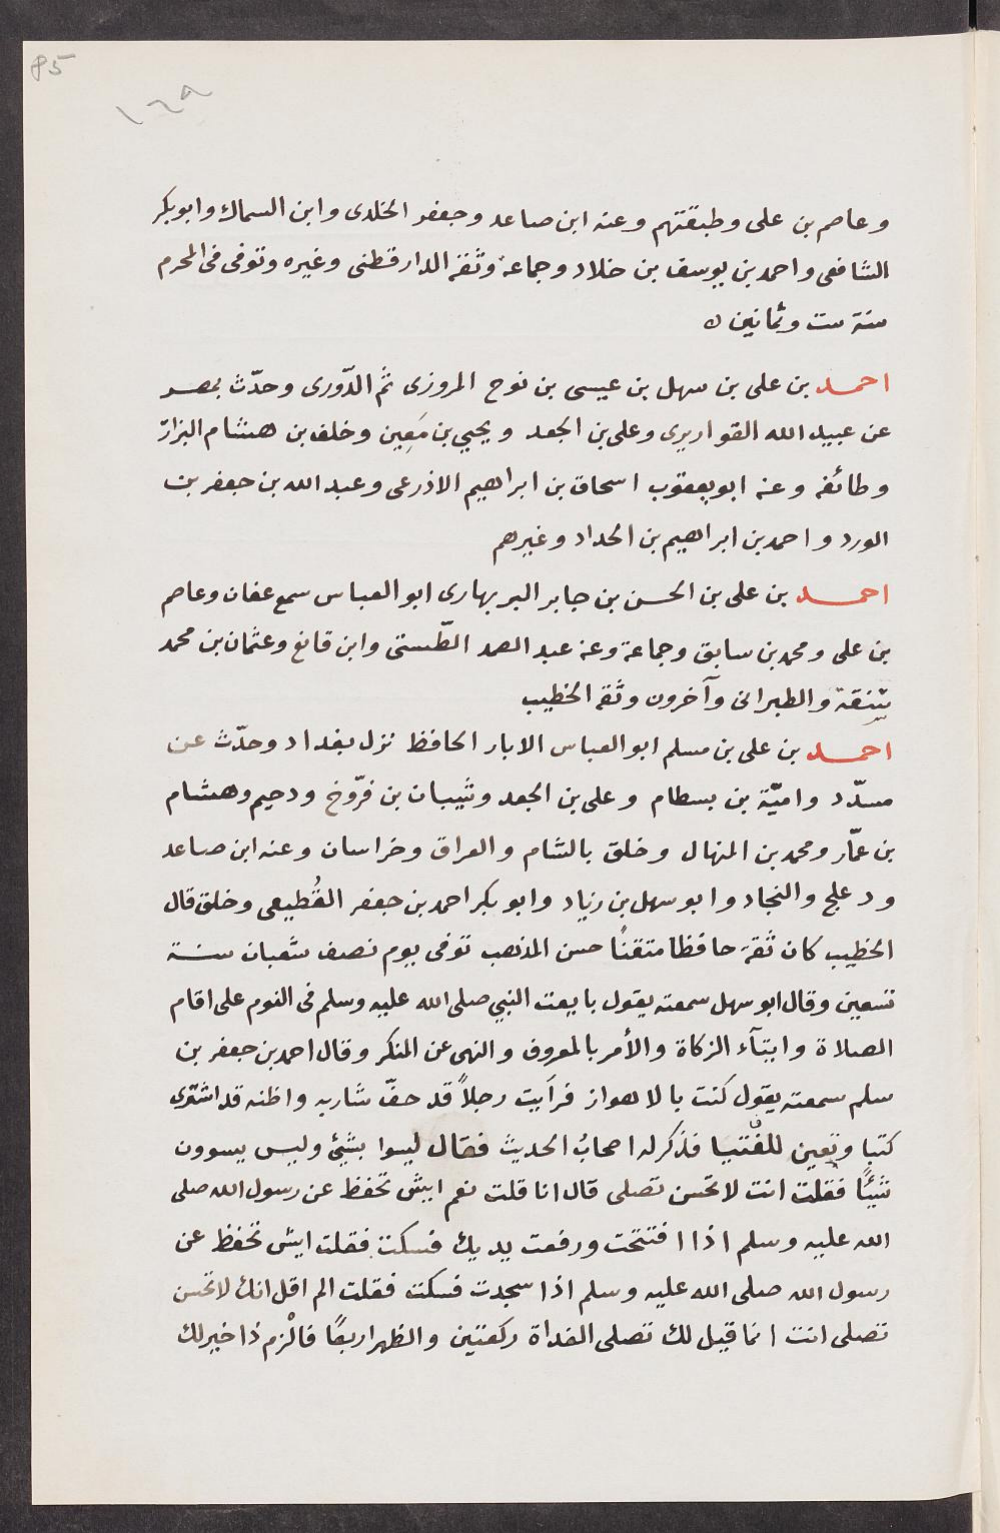 85
١٢٩
وعاصم بن على وطبقتهم وعنه ابن صاعد وجعفر الخلدى وابن السماك وابو بكر
الشافعى واحمد بن يوسف بن خلاد وجماعة وثقه الدارقطنى وغيره وتوفى فى المحرم
سنة ست وثمانين ٥
احمد بن على بن سهل بن عيسى بن نوح المروزى ثم الدّورى وحدّث بمصر
عن عبيد الله القواريرى وعلى بن الجعد ويحيي بن مَعِين وخلف بن هشام البزار
وطائفه وعنه ابو يعقوب اسحاق بن ابراهيم الاذرعى وعبد الله بن جعفر بن
الورد واحمد بن ابراهيم بن الحداد وغيرهم
احمد بن على بن الحسن بن جابر البربهارى ابو العباس سمع عفان وعاصم
بن على ومحمد بن سابق وجماعة وعنه عبد الصمد الطّستى وابن قانع وعثمان بن محمد
والطبرانى وآخرون وثقه الخطيب
احمد بن على بن مسلم ابو العباس الابار الحافظ نزل بغداد وحدّث عن
مسدّد واميّة بن بسطام وعلى بن الجعد وشيبان بن فرّوخ ودحيم وهشام
بن عمّار ومحمد بن المنهال وخلق بالشام والعراق وخراسان وعنه ابن صاعد
ودعلج والنجاد وابو سهل بن زياد وابو بكر احمد بن جعفر القُطيعى وخلق قال
الخطيب كان ثقة حافظا متقنًا حسن المذهب توفى يوم نصف شعبان سنة
تسعين وقال ابو سهل سمعته يقول بايعت النبي صلى الله عليه وسلم فى النوم على اقام
الصلاة وايتآء الزكاة والأمر بالمعروف والنهى عن المنكر وقال احمد بن جعفر بن
سلم سمعته يقول كنت بالاهواز فرآيت رجلاً قد حفّ شاربه واظنه قد اشترى
كتبا وتعين للفُتيا فذكر له اصحابُ الحديث فقال ليسوا بشيْئ وليس يسوون
شيْئًا فقلت انت لا تحسن تصلى قال انا قلت نعم ايش تحفظ عن رسول الله صلى
الله عليه وسلم اذا افتتحت ورفعت يديك فسكت فقلت ايش تحفظ عن
رسول الله صلى الله عليه وسلم اذا سجدت فسكت فقلت الم اقل انك لا تحسن
تصلى انت انما قيل لك تصلى الغداة ركعتين والظهر اربعًا فالْزم ذا خير لك